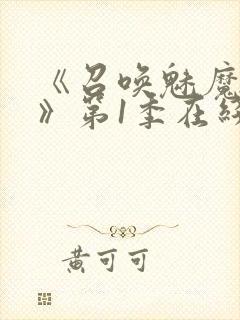 《召唤魅魔
》第1季在线
黄可可